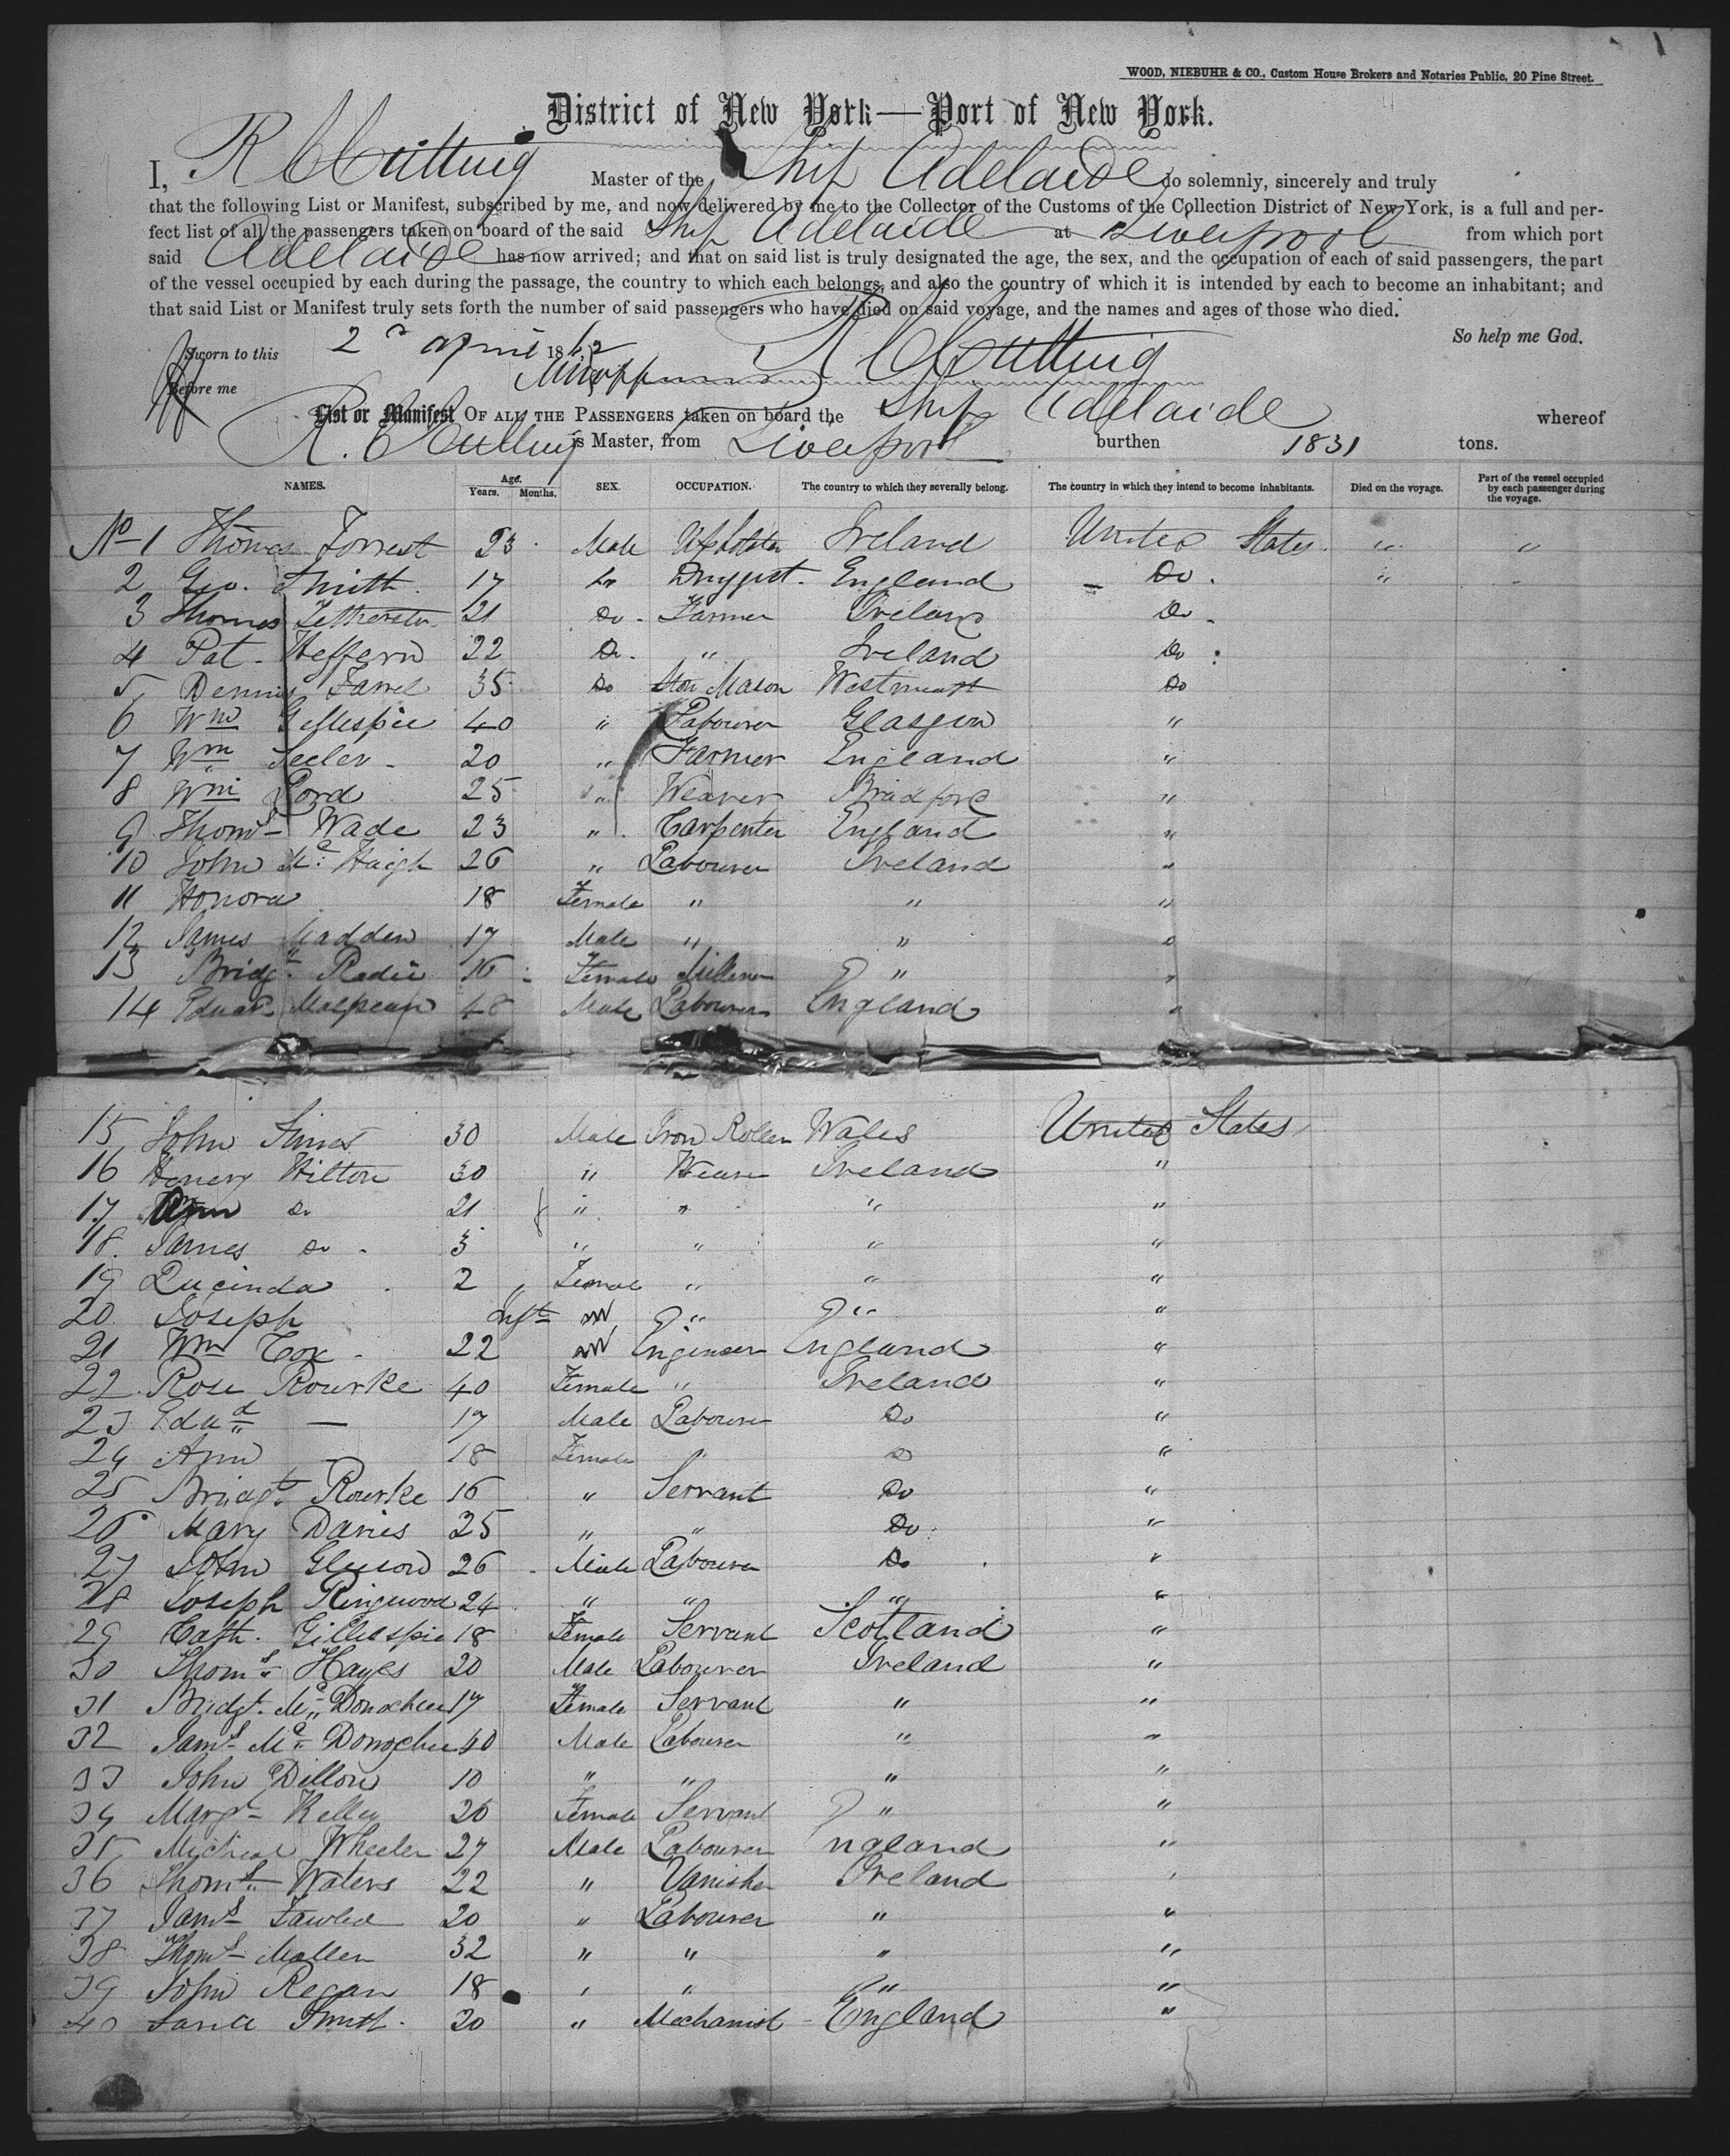 WOOD, NIEBUHR & CO., Custom House Brokers and Notaries Public, 20 Pine Street.
District of New York—Port of New York.
I, R Cutting Master of the Ship Adelaide do solemnly, sincerely and truly
that the following List or Manifest, subscribed by me, and now delivered by me to the Collector of the Customs of the Collection District of New York, is a full and per-
fect list of all the passengers taken on board of the said Ship Adelaide at Liverpool from which port
said Adelaide has now arrived; and that on said list is truly designated the age, the sex, and the occupation of each of said passengers, the part
of the vessel occupied by each during the passage, the country to which each belongs, and also the country of which it is intended by each to become an inhabitant; and
that said List or Manifest truly sets forth the number of said passengers who have died on said voyage, and the names and ages of those who died.
So help me God.
Sworn to this 2d april 1862
Before me R Cutting
List or Manifest OF ALL THE PASSENGERS taken on board the Ship Adelaide whereof
R. Cutting is Master, from Liverpool burthen 1831 tons.
NAMES. Age. Years. Months. SEX. OCCUPATION. The country to which they severally belong. The country in which they intend to become inhabitants. Died on the voyage. Part of the vessel occupied by each passenger during the voyage.
No 1 Thomas Forrest 23 Male Ireland United States. " "
2 Geo. Smith 17 Do Druggist. England Do. "
3 Thomas 21 Do. Farmer Ireland Do.
4 Pat. Heffern 22 Do. " Ireland Do
5 Dennis Farrel 35 Do Ston Mason Westmeath Do
6 Wm Gillespie 40 " Labourer Glasgow "
7 Wm Seeler 20 " Farmer England "
8 Wm Pord 25 " Weaver Bradford "
9 Thoms Wade 23 " Carpenter England "
10 John Mc Haigh 26 " Labourer Ireland "
11 Honora 18 Female " " "
12 James Madden 17 Male " " "
13 Bridgt 16 Female " "
14 Edward 48 Male Labourer England "
15 John 30 Male Iron Roller Wales United States
16 Henery Hilton 30 " Ireland "
17 Ann Do 21 " " " "
18. James Do. 3 " " " "
19 Lucinda 2 " Female " " "
20. Joseph Inft M " " "
21 Wm Cox 22 M Engineer England "
22 Rose Rourke 40 Female " Ireland "
23 Edwd — 17 Male Labourer Do "
24 Ann — 18 Female " Do "
25 Bridgt. Rourke 16 " Servant Do "
26 Mary Davies 25 " " Do "
27 John Gleeson 26 Male Labourer Do "
28 Joseph Ringwood 24 " " " "
29 Cath. Gillespie 18 Female Servant Scotland "
30 Thoms Hayes 20 Male Labourer Ireland "
31 Bridgt. Mc Donoghue 17 Female Servant " "
32 Jams Mc Donoghue 40 Male Labourer " "
33 John Dillon 10 " " " "
34 Margt Kelley 20 Female Servant " "
35 Micheal Wheeler 27 Male Labourer England "
36 Thoms Waters 22 " Ireland "
37 Jams 20 " Labourer " "
38 Thoms Mallen 32 " " " "
39 John Regan 18 " " " "
40 Smith 20 " Mechanist England "